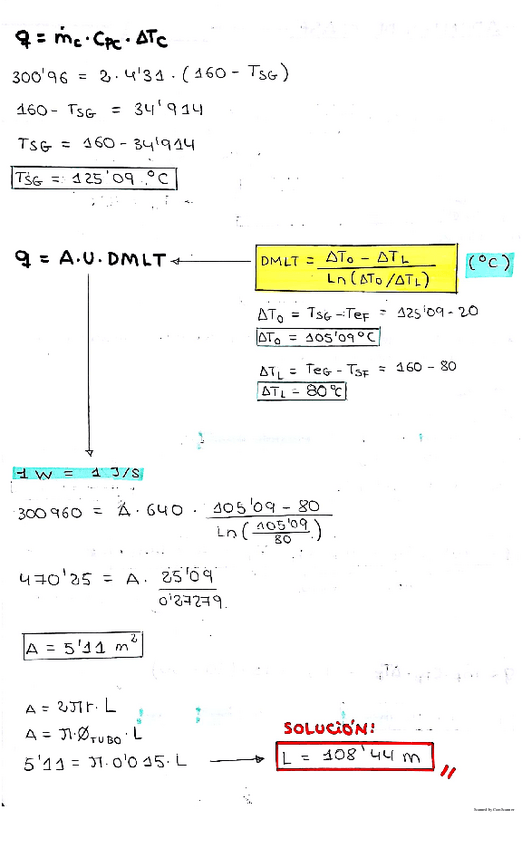 q = ṁc · Cpc · ΔTc
300'96 = 2 · 4'31 · (160 - TSG)
160 - TSG = 34'914
TSG = 160 - 34'914
TSG = 125'09 °C
q = A · U · DMLT
DMLT = ΔT0 - ΔTL / Ln (ΔT0 / ΔTL)
(°C)
ΔT0 = TSG - TeF = 125'09 - 20
ΔT0 = 105'09 °C
ΔTL = TeG - TSF = 160 - 80
ΔTL = 80 °C
1 W = 1 J/S
300960 = A · 640 · 105'09 - 80 / Ln (105'09 / 80)
470'25 = A · 25'09 / 0'27279
A = 5'11 m²
A = 2πr · L
A = π · ØTUBO · L
5'11 = π · 0'015 · L
SOLUCIÓN:
L = 108'44 m
Scanned by CamScanner